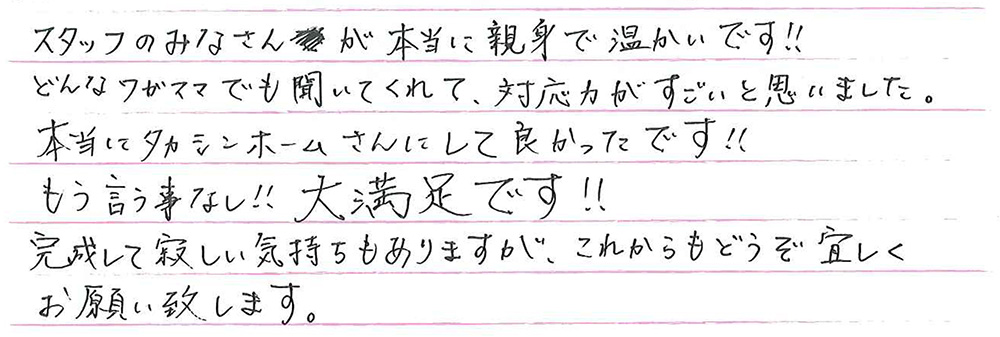 スタッフのみなさんが本当に親身で温かいです!!
どんなワガママでも聞いてくれて、対応力がすごいと思いました。
本当にタカシンホームさんにして良かったです!!
もう言う事なし!! 大満足です!!
完成して寂しい気持ちもありますが、これからもどうぞ宜しく
お願い致します。